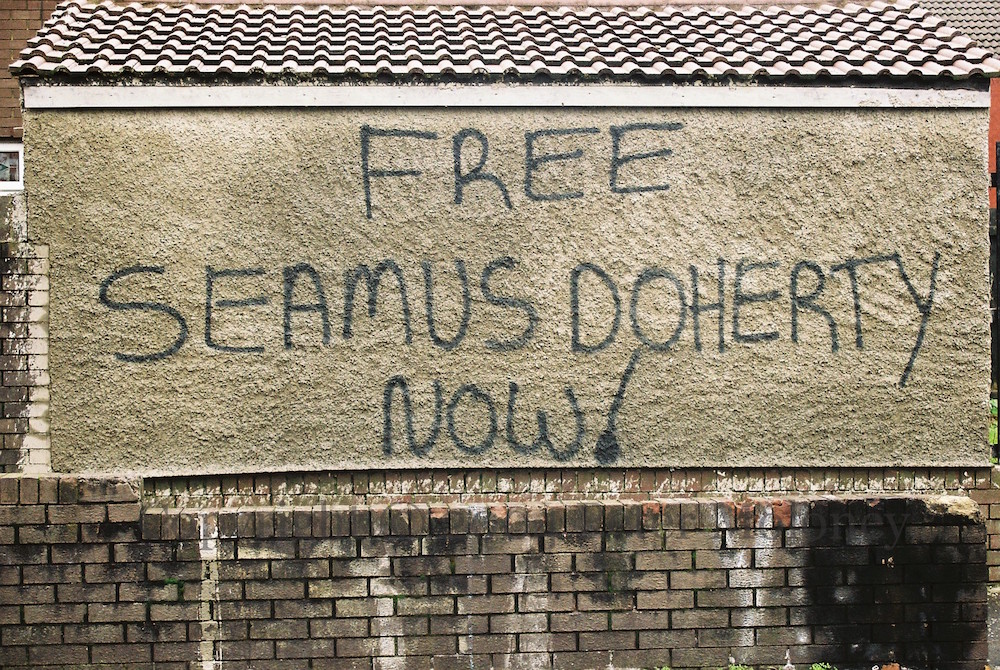 FREE
SEAMUS DOHERTY
NOW!